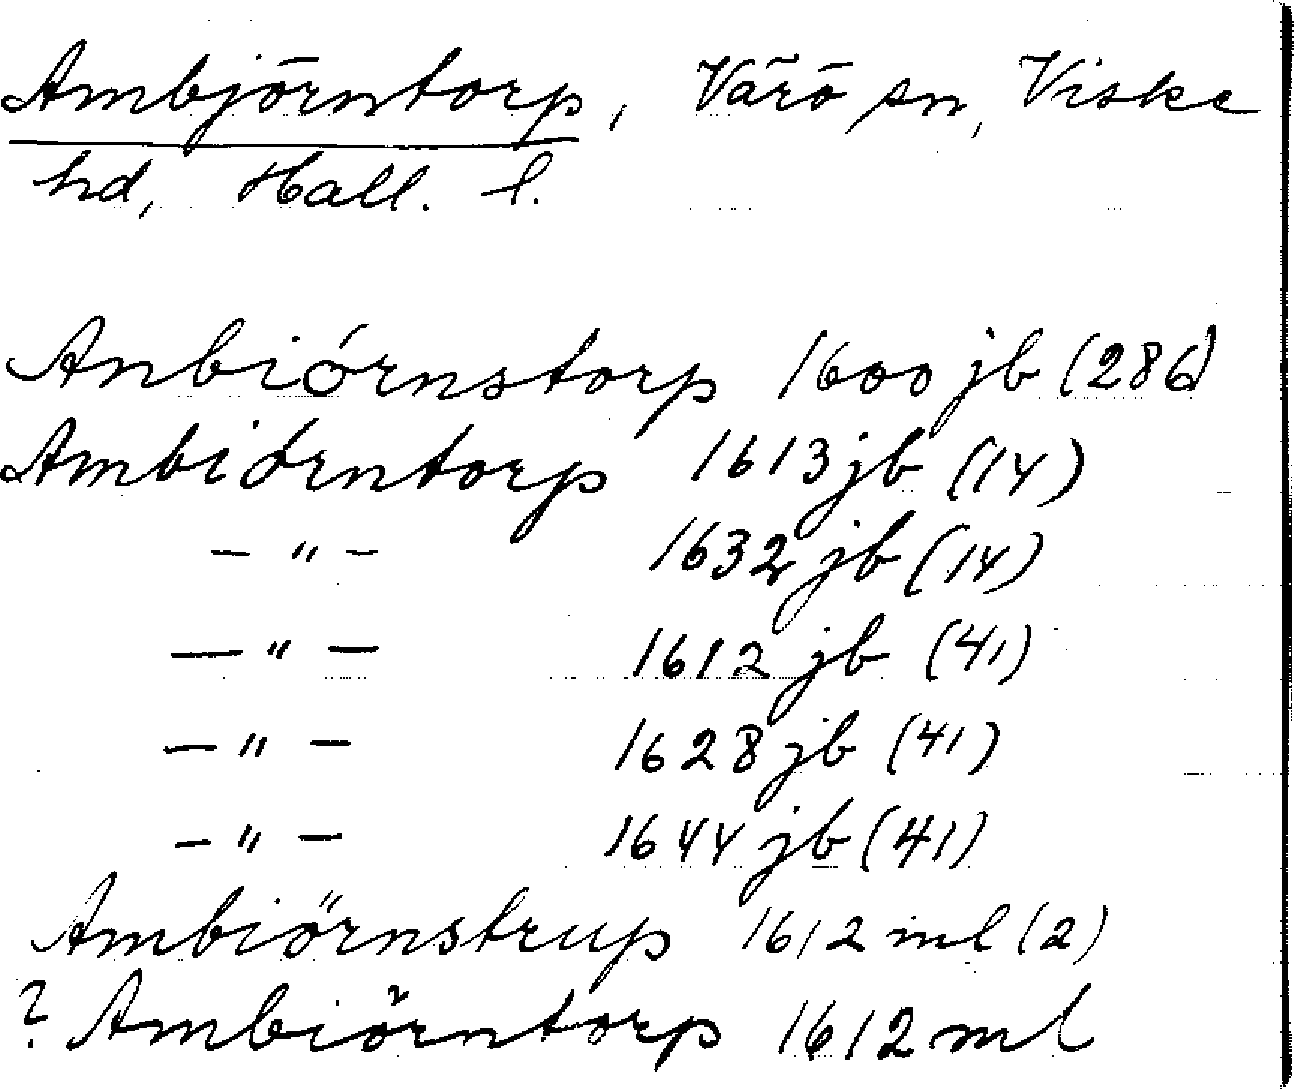 Ambjörntorp, Värö sn, Viske
hd, Hall. l.
Anbiórnstorp 1600 jb (286)
Ambiórntorp 1613 jb (14)
- " - 1632 jb (14)
- " - 1612 jb (41)
- " - 1628 jb (41)
- " - 1644 jb (41)
Ambiörnstrup 1612 ml (2)
? Ambiörntorp 1612 ml